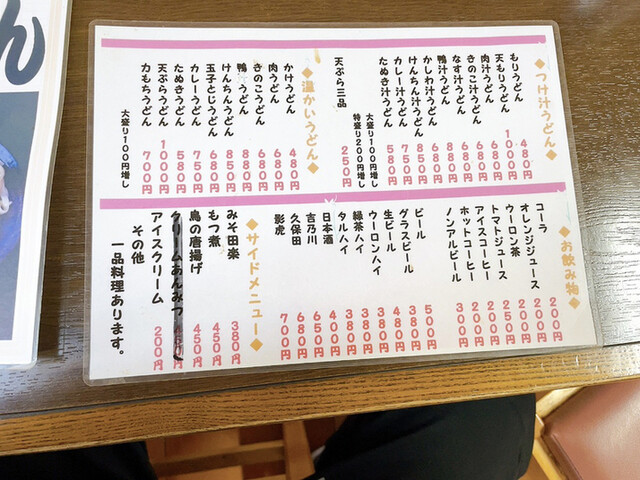 ◆つけ汁うどん◆
もりうどん 480円
天もりうどん 1000円
肉汁うどん 680円
きのこ汁うどん 680円
なす汁うどん 680円
鴨汁うどん 880円
かしわ汁うどん
けんちん汁うどん
カレー汁うどん 750円
たぬき汁うどん 580円
大盛り100円増し
特盛り200円増し
天ぷら三品 250円
◆温かいうどん◆
かけうどん 480円
肉うどん 680円
きのこうどん 680円
鴨うどん 880円
けんちんうどん 680円
玉子とじうどん 680円
カレーうどん 750円
たぬきうどん 580円
天ぷらうどん 1000円
力もちうどん 700円
大盛り100円増し
◆お飲み物◆
コーラ 200円
オレンジジュース 200円
ウーロン茶 200円
トマトジュース 250円
アイスコーヒー
ホットコーヒー 300円
ノンアルビール 300円
ビール 500円
グラスビール
生ビール
ウーロンハイ 380円
緑茶ハイ 380円
タルハイ
日本酒 400円
吉乃川 650円
久保田 680円
影虎 700円
◆サイドメニュー◆
みそ田楽 380円
もつ煮 450円
鳥の唐揚げ 450円
クリームあんみつ 450円
アイスクリーム 200円
その他
一品料理あります。
ん